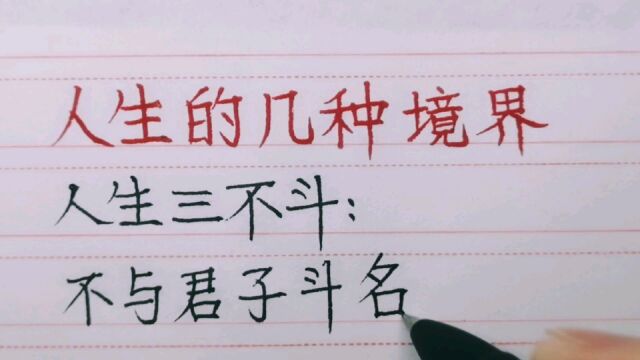 人生的几种境界
人生三不斗:
不与君子斗名